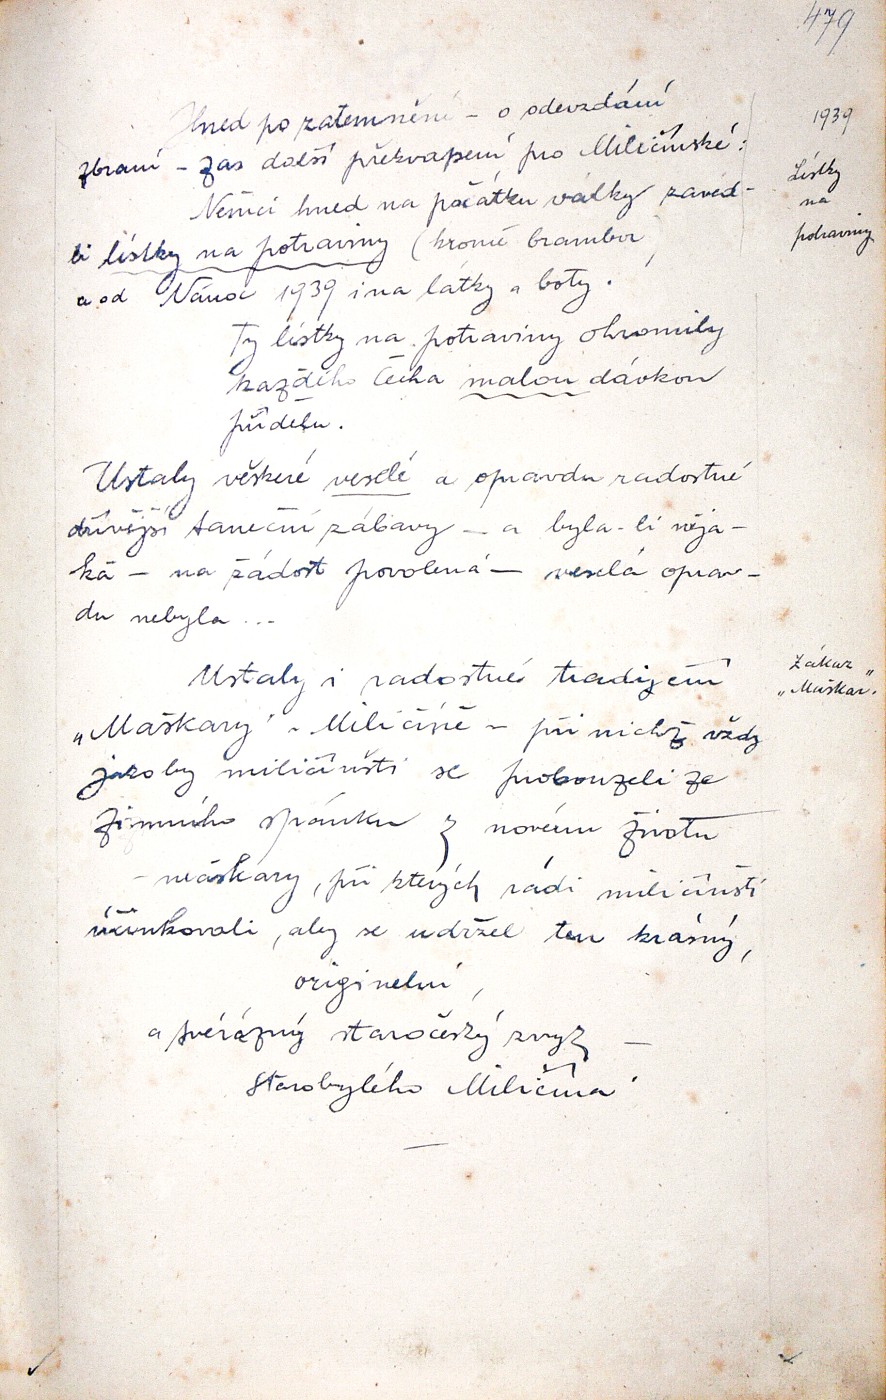 479
Hned po zatemnění – o odevzdání
1939
zbraní – zas další překvapení pro Miličínské:
Lístky
na
potraviny
Němci hned na počátku války zaved-
li lístky na potraviny (kromě brambor)
a od Vánoc 1939 i na látky a boty.
Ty lístky na potraviny ohromily
každého Čecha malou dávkou
přídělu.
Ustaly věškeré veselé a opravdu radostné
dřívější taneční zábavy – a byla-li něja-
ká – na žádost povolená – veselá oprav-
du nebyla ...
Zákaz
„Maškar."
Ustaly i radostné tradiční
„Maškary" v Miličíně – při nichž vždy
jakoby miličínští se probouzeli ze
zimního spánku k novému životu
– maškary, při kterých rádi miličínští
účinkovali, aby se udržel ten krásný,
originelní,
a svérázný staročeský zvyk –
starobylého Miličína!